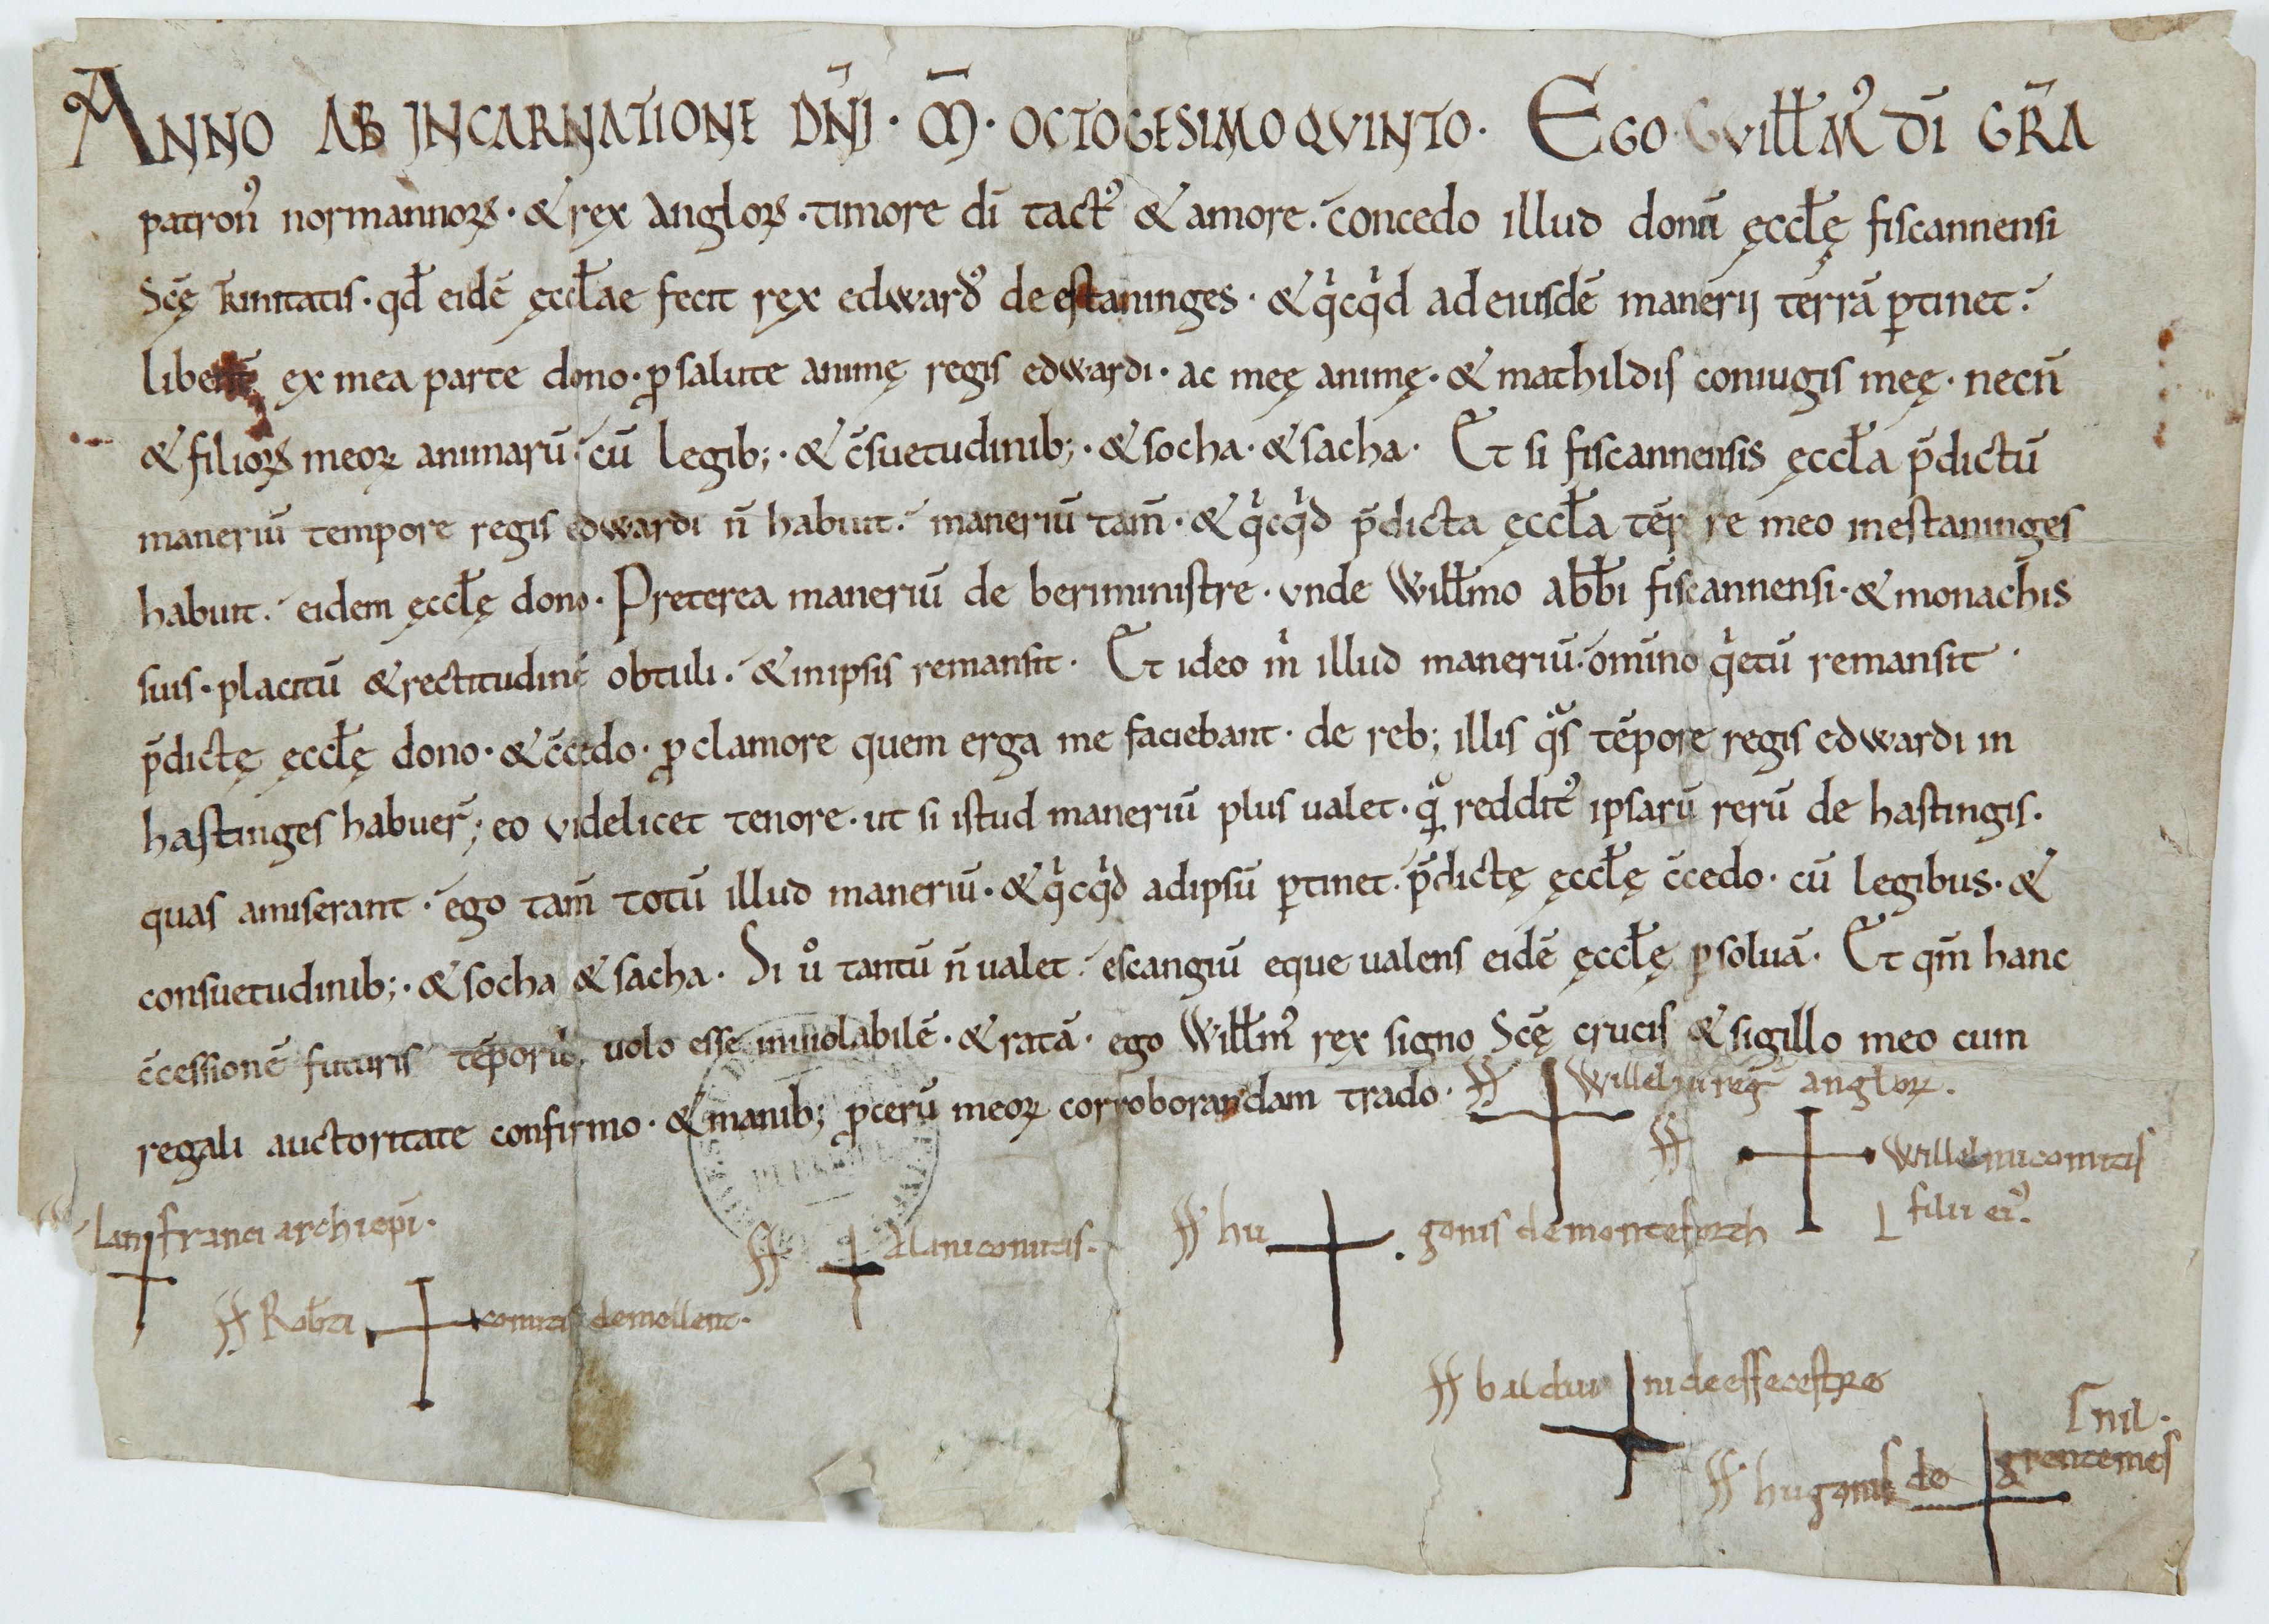 ANNO AB INCARNATIONE DN̄I · M̄ · OCTOGESIMO QVINTO · EGO GVILL̄M᾿ DĪ GR̄A
patron᾿ normannoꝝ · & rex Angloꝝ · timore dī tact᾿ & amore · concedo illud donū ęccl̄ę fiscannensi
Scę̄ trinitatis · qd̄ eidē ęccl̄ae fecit rex edward᾿ de estaninges · & qͥcqͥd ad eiusdē manerij terrā ꝑtinet ·
libentē ex mea parte dono · ꝓ salute animę regis edwardi · ac meę animę · & mathildis coniugis meę · necn̄
& filioꝝ meoꝝ animarū · cū legib; · & c̄suetudinib; · & socha · & sacha · Et si fiscannensis ęccl̄a p̄dictū
maneriū tempore regis edwardi n̄ habuit · maneriū tam̄ · & qͥcqͥd p̄dicta ęccl̄a tēpore meo in estaninges
habuit · eidem ęccl̄ę dono · Preterea maneriū de beriministre · unde Will̄mo abb̄i fiscannensi · & monachis
suis · placitū & rectitudinē obtuli · & in ipsis remansit · Et ideo m̊ illud maneriū · omīno qͥetū remansit ·
p̄dictę ęccl̄ę dono · & c̄cedo · ꝓ clamore quem erga me faciebant · de reb; illis qͣs tēpore regis edwardi in
hastinges habuer̄; eo videlicet tenore · ut si istud maneriū plus ualet · qͣ̄ reddit᾿ ipsarū rerū de hastingis ·
quas amiserant · ego tam̄ totū illud maneriū · & qͥcqͥd ad ipsū ꝑtinet · p̄dictę ęccl̄ę c̄cedo · cū legibus · &
consuetudinib; · & socha & sacha · Si uͦ tantū n̄ ualet · escangiū eque ualens eidē ęccl̄ę ꝑsoluā · Et qm̄ hanc
c̄cessionē futuris tēporib; uolo esse inuiolabilē · & ratā · ego Will̄m᾿ rex signo Scę̄ crucis & sigillo meo cum
regali auctoritate confirmo · & manib; ꝓcerū meoꝝ corroborandam trado · SS Willelmi reḡ angloꝝ ·
SS Willelmi comitis
filii ei᾿ ·
SS Lanfranci archiepī ·
SS Alani comitis ·
SS hugonis de monteforth
SS Rob̄ti comitis de mellent ·
SS balduini de essecestre
SS hugonis de grentemesnil ·